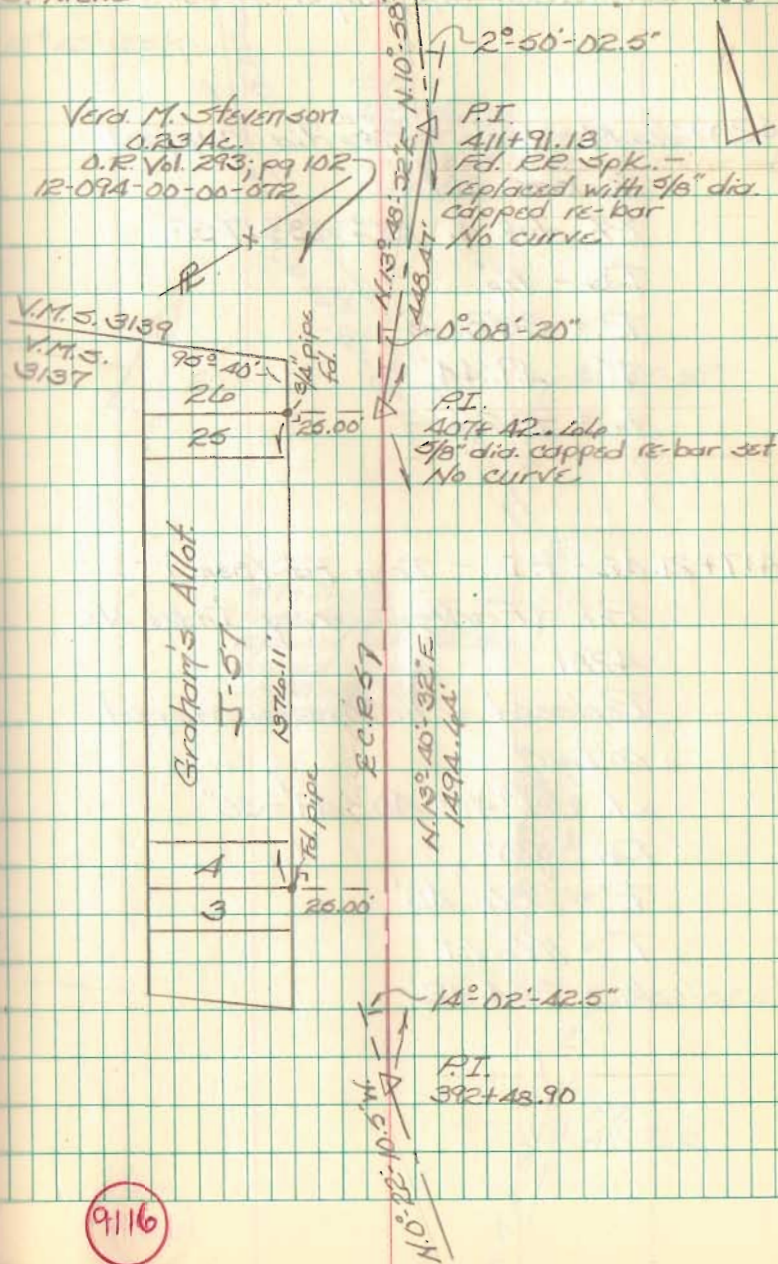 2°-50'-02.5"
N.10°-58'
Verd. M. Stevenson
0.23 Ac.
O.R. Vol. 293; pg 102
12-094-00-00-072
P.I.
411+91.13
Fd. RR. Spk. -
replaced with 5/8" dia.
capped re-bar
No curve
N.13°-48'-52"E
448.47'
V.M.S. 3139
V.M.S.
3137
95°-40'
3/4" pipe
fd.
0°-08'-20"
26
25
25.00'
P.I.
407+42.66
5/8" dia. capped re-bar set
No curve
Graham's Allot.
J-57
1376.11'
E.C.R. 57
N.13°-40'-32"E
1494.64'
Fd. pipe
4
3
25.00'
14°-02'-42.5"
P.I.
392+48.90
N.0°-22'-10.5"W.
9116